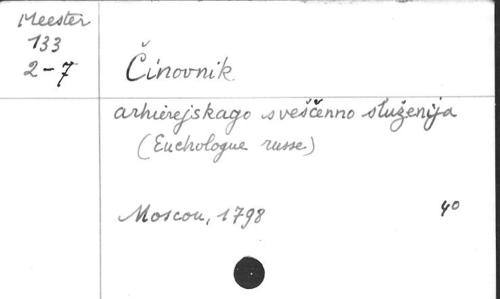 Meester
133
2-7
Činovnik
arhierejskago sveščenno služenija
(Euchologue russe)
Moscou, 1798
40